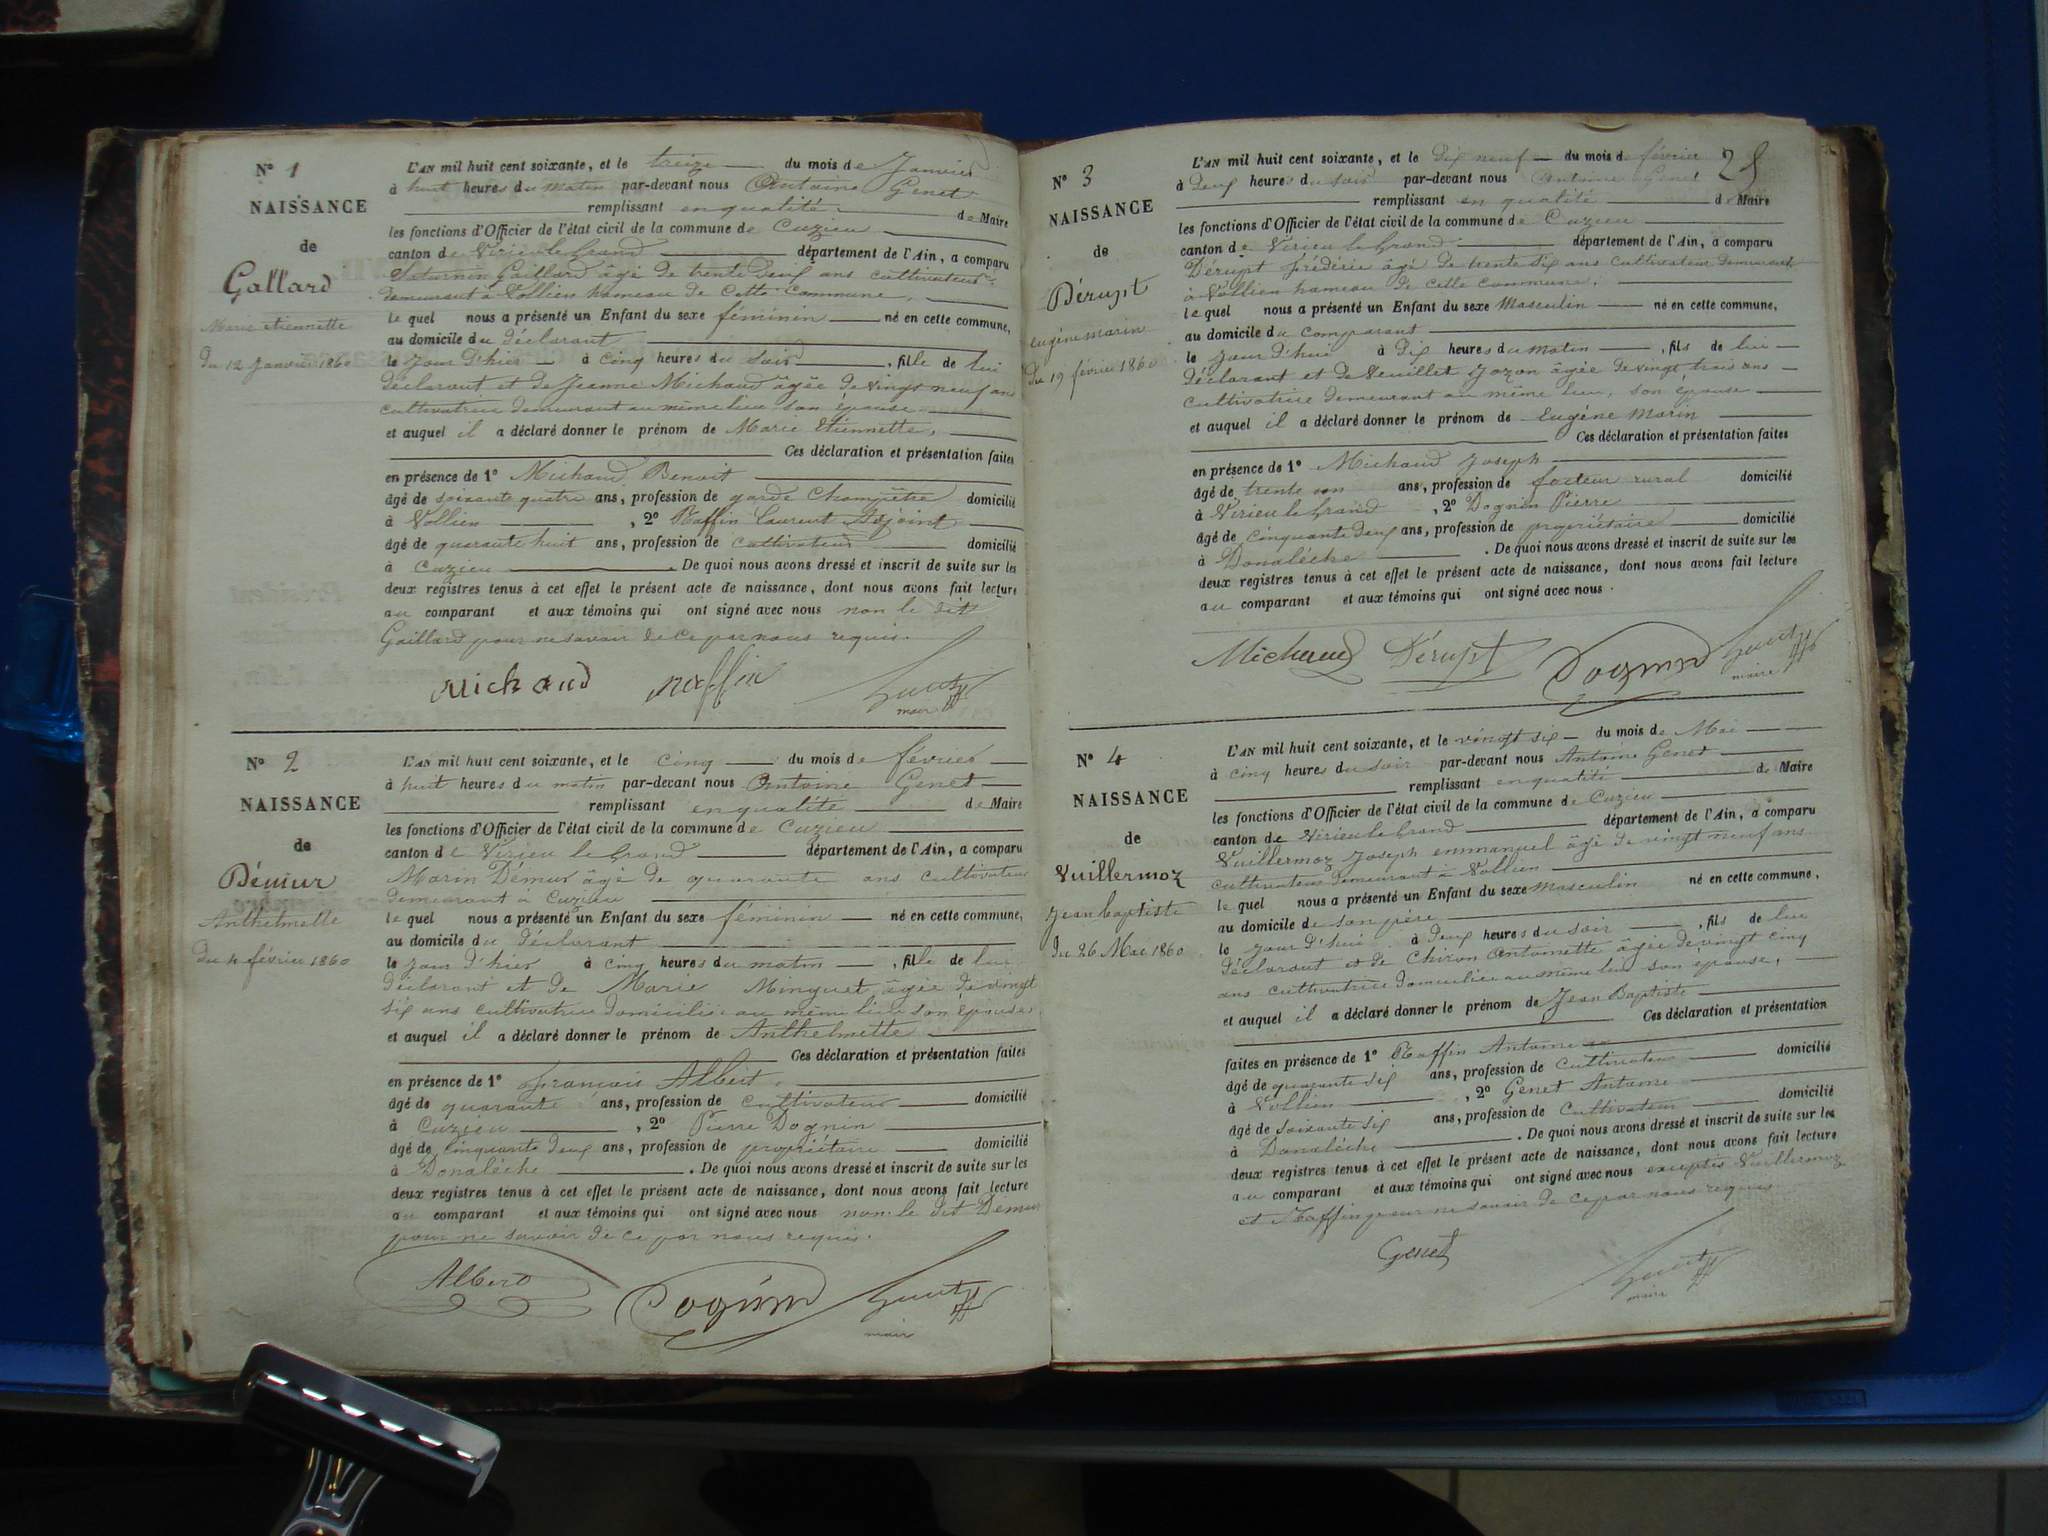 N° 1
NAISSANCE
de
Gallard
Marie etiennette
du 12 Janvier 1860
L'AN mil huit cent soixante, et le treize du mois de Janvier
à huit heures du matin par-devant nous Antoine Genet
remplissant en qualité de Maire
les fonctions d'Officier de l'état civil de la commune de Cuzieu
canton de Virieu le Grand département de l'Ain, a comparu
Saturnin Gaillard âgé de trente deux ans cultivateur
demeurant à Vollien hameau de cette commune,
le quel nous a présenté un Enfant du sexe féminin né en cette commune,
au domicile du déclarant
le jour d'hier à cinq heures du soir, fille de lui
déclarant et de Jeanne Michaud âgée de vingt neuf ans
cultivatrice demeurant au même lieu son épouse
et auquel il a déclaré donner le prénom de Marie Etiennette,
Ces déclaration et présentation faites
en présence de 1° Michaud Benoit
âgé de soixante quatre ans, profession de garde Champêtre domicilié
à Vollien, 2° Raffin Laurent Adjoint
âgé de quarante huit ans, profession de cultivateur domicilié
à Cuzieu. De quoi nous avons dressé et inscrit de suite sur les
deux registres tenus à cet effet le présent acte de naissance, dont nous avons fait lecture
au comparant et aux témoins qui ont signé avec nous non le dit
Gaillard pour ne savoir de ce par nous requis.
Michaud Raffin Genet
maire
N° 2
NAISSANCE
de
Démur
Anthelmette
du 4 février 1860
L'AN mil huit cent soixante, et le cinq du mois de février
à huit heures du matin par-devant nous Antoine Genet
remplissant en qualité de Maire
les fonctions d'Officier de l'état civil de la commune de Cuzieu
canton de Virieu le Grand département de l'Ain, a comparu
Marin Démur âgé de quarante ans cultivateur
demeurant à Cuzieu
le quel nous a présenté un Enfant du sexe féminin né en cette commune,
au domicile du déclarant
le jour d'hier à cinq heures du matin, fille de lui
déclarant et de Marie Minguet âgée de vingt
six ans cultivatrice domiciliée au même lieu son épouse
et auquel il a déclaré donner le prénom de Anthelmette
Ces déclaration et présentation faites
en présence de 1° François Albert
âgé de quarante ans, profession de cultivateur domicilié
à Cuzieu, 2° Pierre Dognin
âgé de cinquante deux ans, profession de propriétaire domicilié
à Donalèche. De quoi nous avons dressé et inscrit de suite sur les
deux registres tenus à cet effet le présent acte de naissance, dont nous avons fait lecture
au comparant et aux témoins qui ont signé avec nous non le dit Démur
pour ne savoir de ce par nous requis.
Albert Dognin Genet
maire
25
N° 3
NAISSANCE
de
Dérupt
eugène marin
du 19 février 1860
L'AN mil huit cent soixante, et le Dix neuf du mois de février
à Deux heures du soir par-devant nous Antoine Genet
remplissant en qualité de Maire
les fonctions d'Officier de l'état civil de la commune de Cuzieu
canton de Virieu le Grand département de l'Ain, a comparu
Dérupt frédéric âgé de trente six ans cultivateur demeurant
à Vollien hameau de cette commune,
le quel nous a présenté un Enfant du sexe Masculin né en cette commune,
au domicile du comparant
le jour d'hui à dix heures du matin, fils de lui
déclarant et de Veuillet Jozon âgée de vingt trois ans
cultivatrice demeurant au même lieu, son épouse
et auquel il a déclaré donner le prénom de Eugène Marin
Ces déclaration et présentation faites
en présence de 1° Michaud Joseph
âgé de trente ans, profession de facteur rural domicilié
à Virieu le Grand, 2° Dognin Pierre
âgé de cinquante deux ans, profession de propriétaire domicilié
à Donalèche. De quoi nous avons dressé et inscrit de suite sur les
deux registres tenus à cet effet le présent acte de naissance, dont nous avons fait lecture
au comparant et aux témoins qui ont signé avec nous.
Michaud Dérupt Dognin Genet
maire
N° 4
NAISSANCE
de
Vuillermoz
Jean baptiste
du 26 Mai 1860
L'AN mil huit cent soixante, et le vingt six du mois de Mai
à cinq heures du soir par-devant nous Antoine Genet
remplissant en qualité de Maire
les fonctions d'Officier de l'état civil de la commune de Cuzieu
canton de Virieu le Grand département de l'Ain, a comparu
Vuillermoz Joseph emmanuel âgé de vingt neuf ans
cultivateur demeurant à Vollien
le quel nous a présenté un Enfant du sexe masculin né en cette commune,
au domicile de son père
le jour d'hui à deux heures du soir, fils de lui
déclarant et de Chiron Antoinette âgée de vingt cinq
ans cultivatrice domiciliée au même lieu son épouse,
et auquel il a déclaré donner le prénom de Jean Baptiste
Ces déclaration et présentation
faites en présence de 1° Raffin Antoine
âgé de quarante six ans, profession de cultivateur domicilié
à Vollien, 2° Genet Antoine
âgé de soixante six ans, profession de cultivateur domicilié
à Donalèche. De quoi nous avons dressé et inscrit de suite sur les
deux registres tenus à cet effet le présent acte de naissance, dont nous avons fait lecture
au comparant et aux témoins qui ont signé avec nous exceptés Vuillermoz
et Raffin pour ne savoir de ce par nous requis
Genet Genet
maire